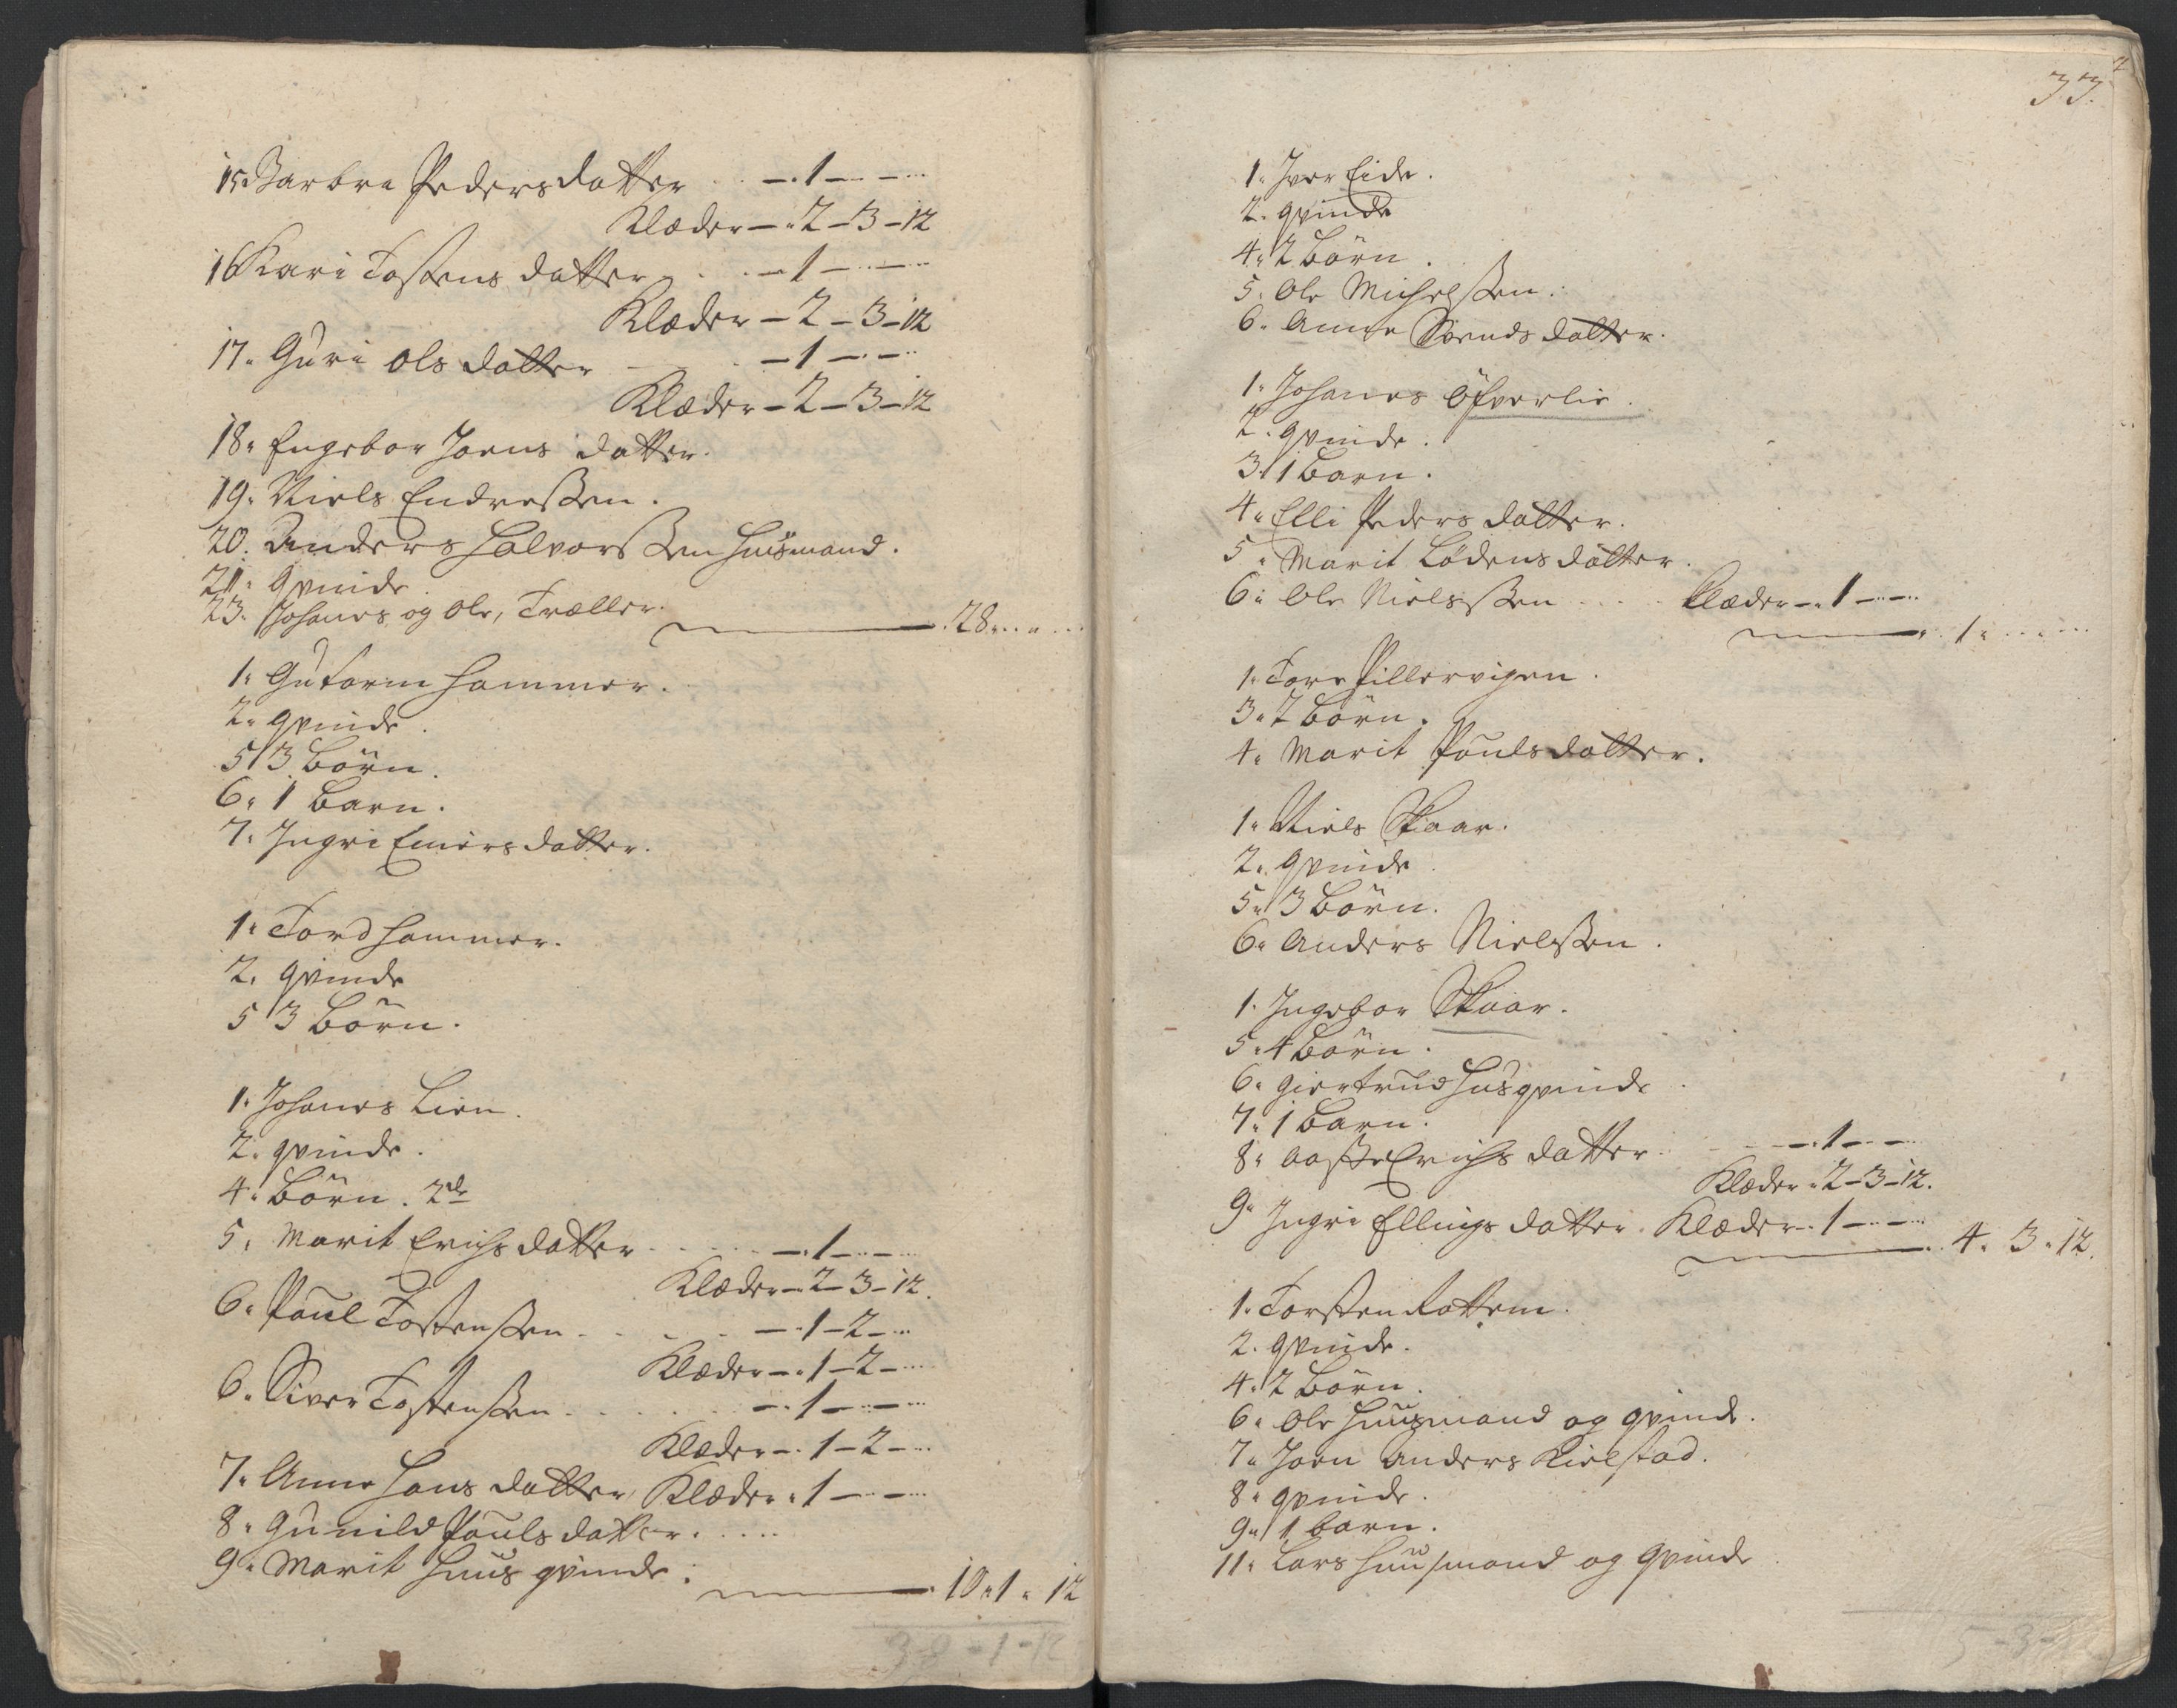 15. Barbra Pedersdatter . . — . 1 — . . — . . .
Klæder — . 2 — 3 — 12
16 Kari Tostens datter . . . — 1 — . . — . .
Klæder — 2 — 3 — 12
17. Guri Ols datter — . . — 1 — . . — . .
Klæder — 2 — 3 — 12
18. Engebor Joens datter.
19. Niels Endressen.
20. Anders Halvorssen Huusmand.
21. Qvinde.
23. Johanes og Ole, Træller.
— . 28 . . . . . . .
1. Gutorm Hammer.
2. Qvinde.
5 / 3 Börn.
6. 1 Barn.
7. Ingri Einersdatter.
1. Tord Hammer.
2. Qvinde
5 / 3 Börn.
1. Johanes Lien.
2. qvinde.
4. Börn. 2de
5. Marit Erichsdatter . . . . — . 1 — . . — . .
Klæder — 2 — 3 — 12.
6. Poul Tostenssen . . . . — . 1 — 2 — . .
Klæder — . 1 — 2 — . . .
6. Siver Tostenssen . . . . — . 1 — . . — . .
Klæder — . 1 — 2 — . . .
7. Anne Hans datter, Klæder . 1 — . . — . .
8. Gunild Poulsdatter . . . . .
9. Marit Huus qvinde.
— . 10 . 1 . 12
38 - 1 - 12
33.
1. Iver Eide.
2. qvinde
4. / 2 Börn.
5. Ole Michelssen.
6. Anne Svends datter.
1. Johanes Öfverlie.
2. qvinde.
3. / 1 Barn.
4. Elli Peders datter.
5. Marit Lödens datter.
6. Ole Nielssen . . . . Klæder — . 1 — . . — . .
— . . 1 . . . . . . .
1. Tore Pillervigen.
3. 2 Börn.
4. Marit Poulsdatter.
1. Niels Skaar.
2. Qvinde.
5. / 3 Börn.
6. Anders Nielssen.
1. Ingebor Skaar.
5. 4 Börn.
6. Giertrud Husqvinde.
7. 1 Barn.
8. Aasse Erichs datter . . . — . 1 — . . — . .
Klæder . 2 — 3 — 12.
9. Ingri Ellings datter. Klæder — . 1 — . . — . .
— . . 4 . 3 . 12.
1. Torsten Rottem.
2. Qvinde.
4. / 2 Börn.
6. Ole Huusmand og qvinde.
7. Joen Anders Kielstad.
8. qvinde.
9. / 1 barn.
11. Lars Huusmand og Qvinde
5 - 3 -